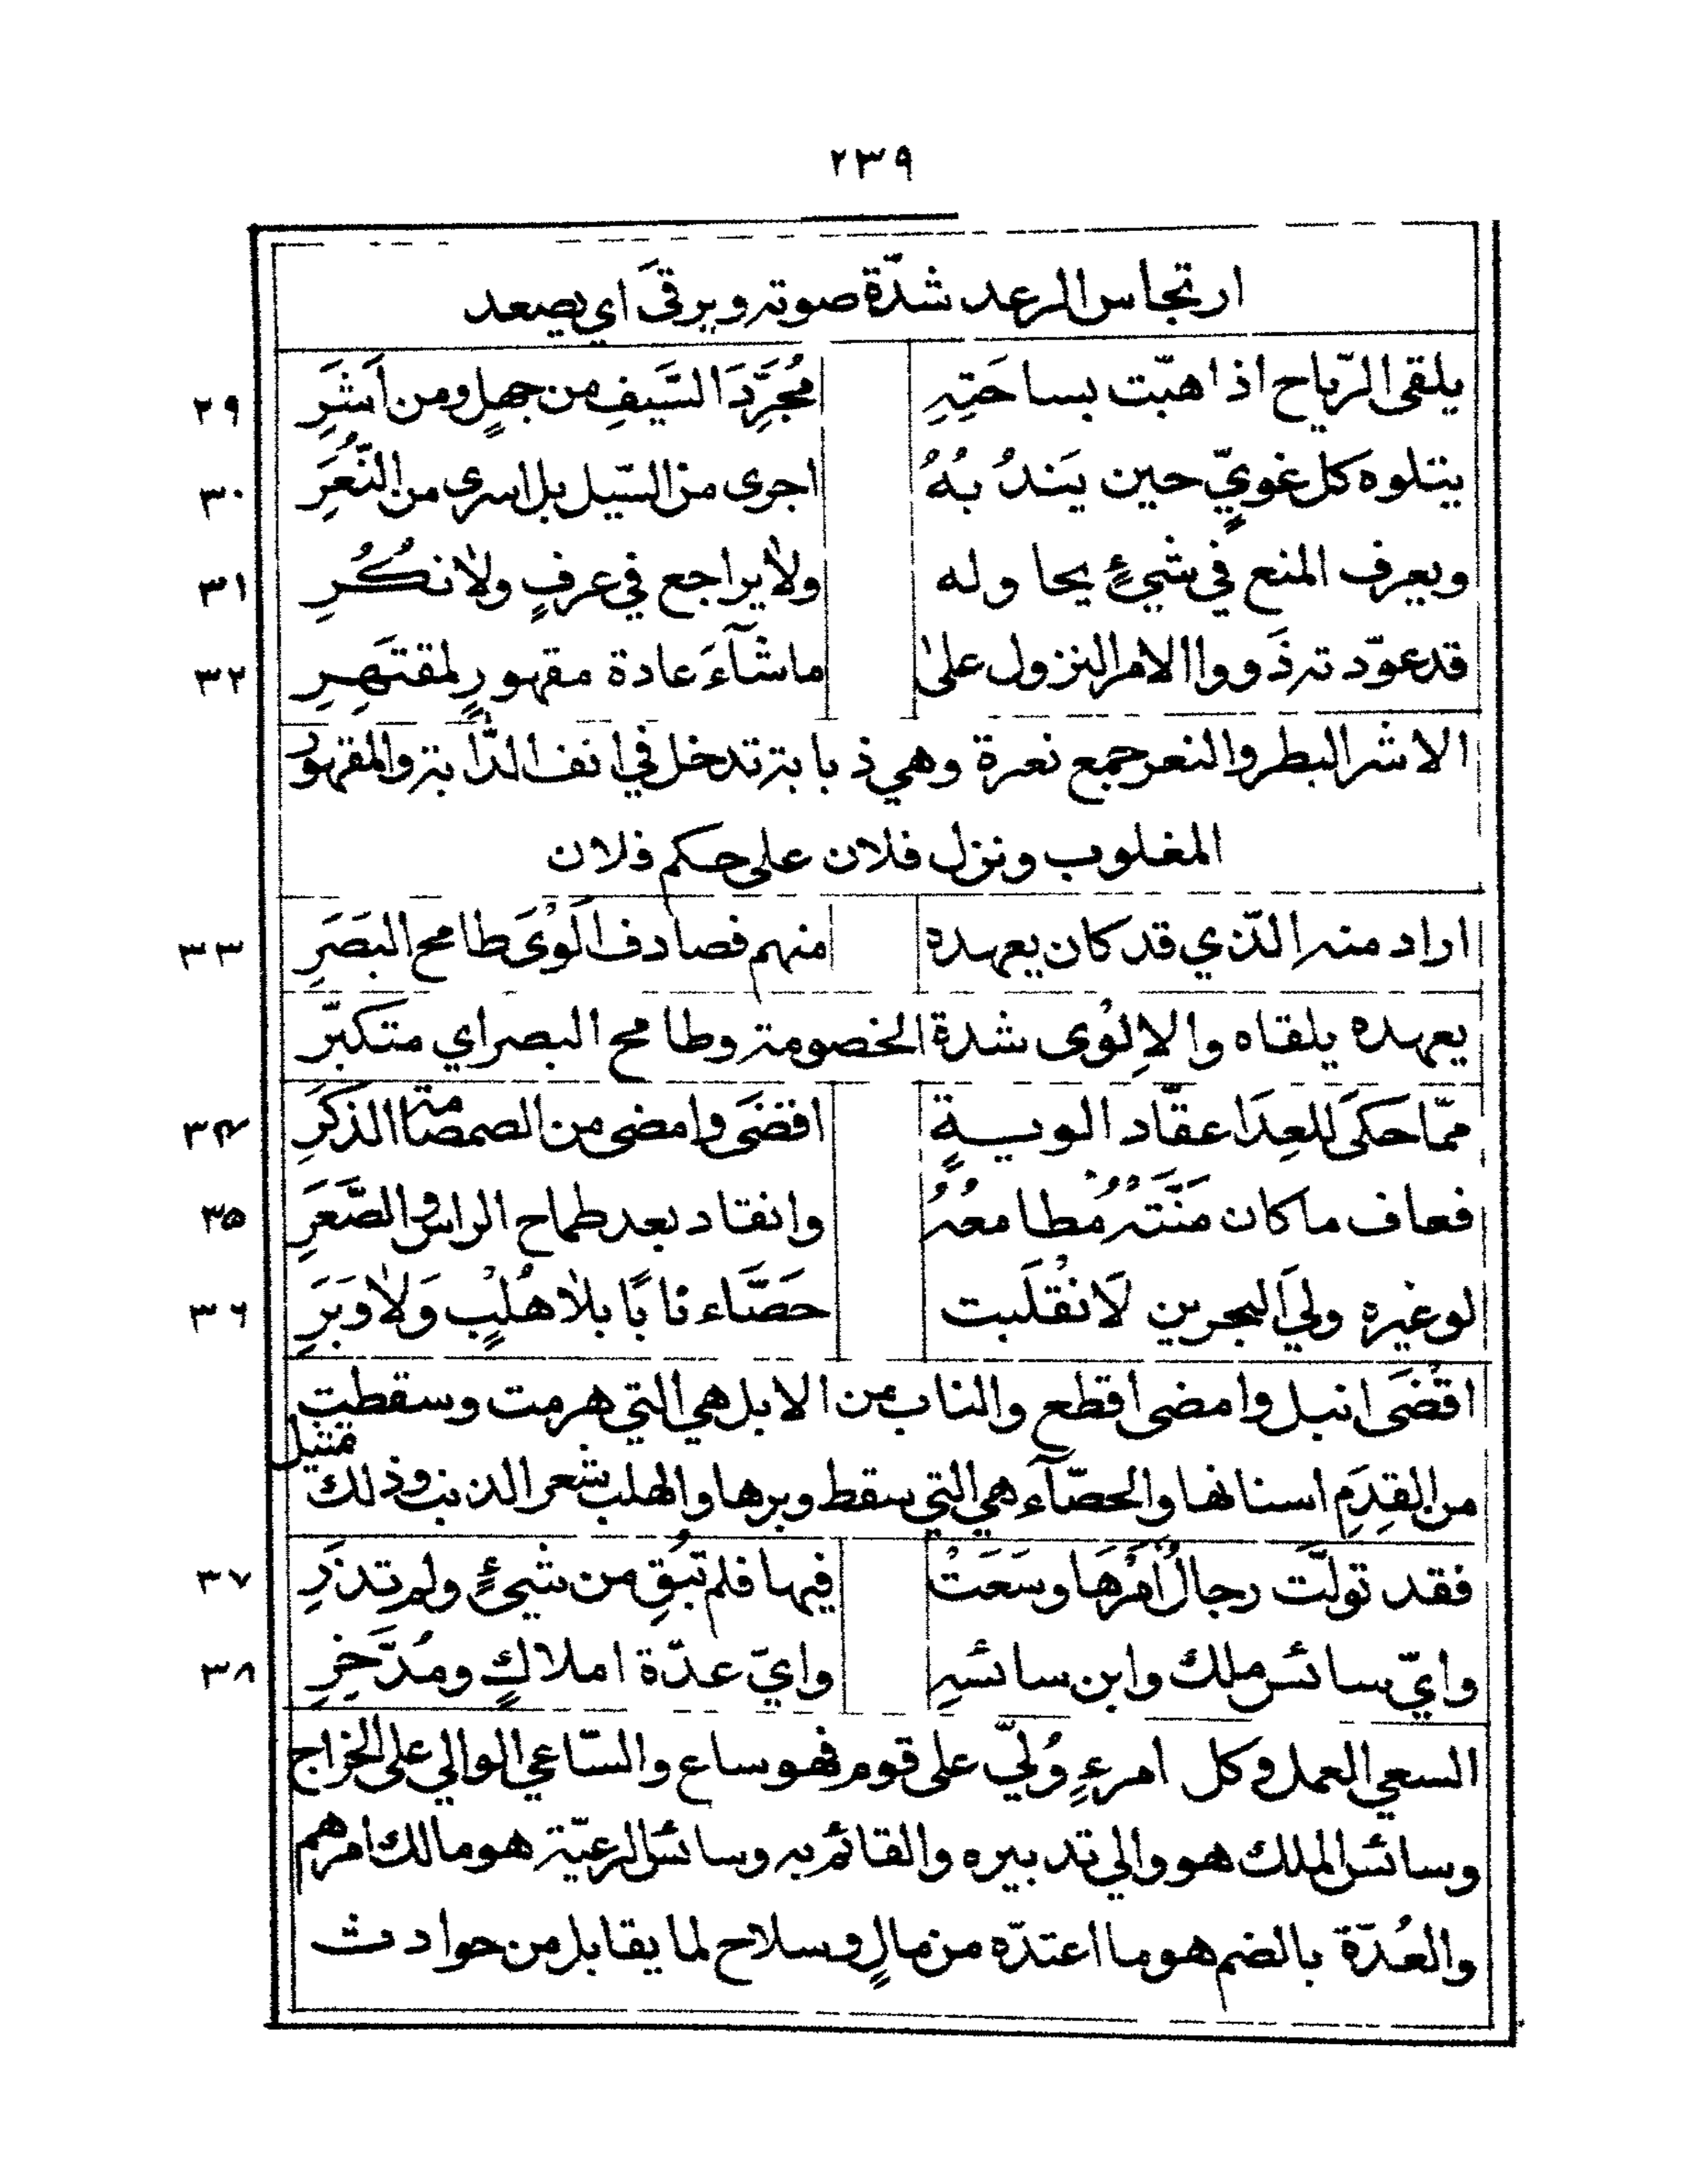 ٢٣٩
ارتجاس الرعد شدّة صوته ويرقىَ اي يصعد
يلقى الرّياح اذا هبّت بساحَتِهِ مُجَرِّدَ السَّيفِ من جهلٍ ومن اَشَرِ ٢٩
يتلوه كل غويٍّ حين يَندُ بُهُ اجرى من السّيل بل اسرى من النُّعَرِ ٣٠
ويعرف المنع في شيءٍ يحاوله ولا يراجع في عرفٍ ولا نُكُرِ ٣١
قد عوّدته ذَووا الامر النزول على ما شآءَ عادة مقهورٍ لمقتَهِرِ ٣٢
الاشر البطر والنعر جمع نعرة وهي ذبابة تدخل في انف الدّابة والمقهور
المغلوب ونزل فلان على حكم فلان
اراد منه الذّي قد كان يعهده منهم فصادف اَلْوَىَ طامح البَصَرِ ٣٣
يعهده يلقاه والاِلْوى شدة الخصومة وطامح البصر اي متكبّر
ممّا حَكىَ للعِدَا عقّاد الويـةٍ اقضَى وامضى من الصمصامة الذكَرِ ٣٤
فعاف ما كان مَنَّتهُ مُطامعُهُ وانقاد بعد طماح الراس والصَّعَرِ ٣٥
لو غيره ولي البحرين لَانْقَلَبت حَصَّاء نابًا بلا هُلْبٍ وَلا وَبَرَِ ٣٦
اقْضَى انبل وامضى اقطع والناب من الابل هي التي هرمت وسقطت
من القِدَمِ اسنانها والحصّآء هي التي سقط وبرها والهلب شعر الذنب وذلك تمثيل
فقد تولّت رجالٌ اَمْرَهَا وسَعَتْ فيها فلم تُبْقِ من شيءٍ ولم تذَرِ ٣٧
وايّ سائس ملك وابن سائسهِ وايّ عدّة املاكٍ ومُدَّخِرِ ٣٨
السعي العمل وكل امرءٍ وُليّ على قوم فهو ساع والسّاعي الوالي على الخراج
وسائس الملك هو والي تدبيره والقائم به وسائس الرعيّة هو مالك امرهم
والعُدّة بالضم هو ما اعتدّه من مالٍ وسلاح لما يقابل من حوادث